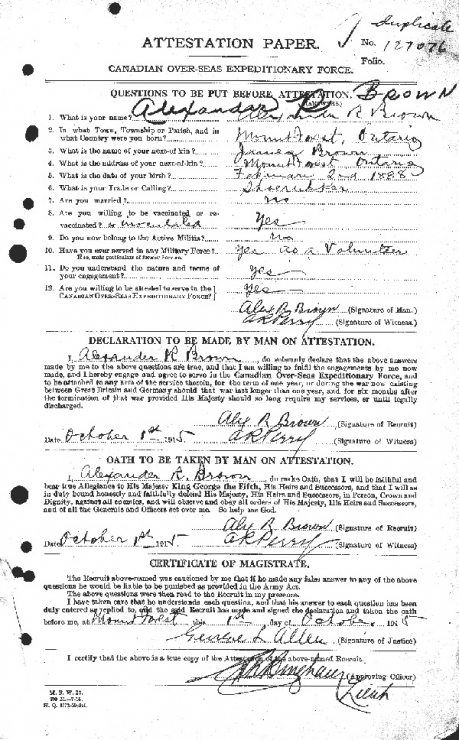 Duplicate
ATTESTATION PAPER.
No. 127076
Folio.
CANADIAN OVER-SEAS EXPEDITIONARY FORCE.
QUESTIONS TO BE PUT BEFORE ATTESTATION. BROWN
(ANSWERS)
1. What is your name? Alexander R Brown
2. In what Town, Township or Parish, and in
what Country were you born? Mount Forest, Ontario
3. What is the name of your next-of-kin? James Brown
4. What is the address of your next-of-kin? Mount Forest Ontario
5. What is the date of your birth? February 2nd 1888
6. What is your Trade or Calling?
7. Are you married? no
8. Are you willing to be vaccinated or re-
vaccinated? or inoculated Yes
9. Do you now belong to the Active Militia? no
10. Have you ever served in any Military Force? Yes as a Volunteer
If so, state particulars of former Service.
11. Do you understand the nature and terms of
your engagement? yes
12. Are you willing to be attested to serve in the
CANADIAN OVER-SEAS EXPEDITIONARY FORCE? yes
Alex R Brown (Signature of Man.)
A R Perry (Signature of Witness.)
DECLARATION TO BE MADE BY MAN ON ATTESTATION.
I, Alexander R Brown, do solemnly declare that the above answers
made by me to the above questions are true, and that I am willing to fulfil the engagements by me now
made, and I hereby engage and agree to serve in the Canadian Over-Seas Expeditionary Force, and
to be attached to any arm of the service therein, for the term of one year, or during the war now existing
between Great Britain and Germany should that war last longer than one year, and for six months after
the termination of that war provided His Majesty should so long require my services, or until legally
discharged.
Alex R Brown (Signature of Recruit)
Date October 1st 1915 A R Perry (Signature of Witness)
OATH TO BE TAKEN BY MAN ON ATTESTATION.
I, Alexander R. Brown, do make Oath, that I will be faithful and
bear true Allegiance to His Majesty King George the Fifth, His Heirs and Successors, and that I will as
in duty bound honestly and faithfully defend His Majesty, His Heirs and Successors, in Person, Crown and
Dignity, against all enemies, and will observe and obey all orders of His Majesty, His Heirs and Successors,
and of all the Generals and Officers set over me. So help me God.
Alex R. Brown (Signature of Recruit)
Date October 1st 1915 A R Perry (Signature of Witness)
CERTIFICATE OF MAGISTRATE.
The Recruit above-named was cautioned by me that if he made any false answer to any of the above
questions he would be liable to be punished as provided in the Army Act.
The above questions were then read to the Recruit in my presence.
I have taken care that he understands each question, and that his answer to each question has been
duly entered as replied to, and the said Recruit has made and signed the declaration and taken the oath
before me, at Mount Forest this 1st day of October 1915
George L Allen (Signature of Justice)
I certify that the above is a true copy of the Attestation of the above-named Recruit.
(Approving Officer)
Lieut
M. F. W. 23.